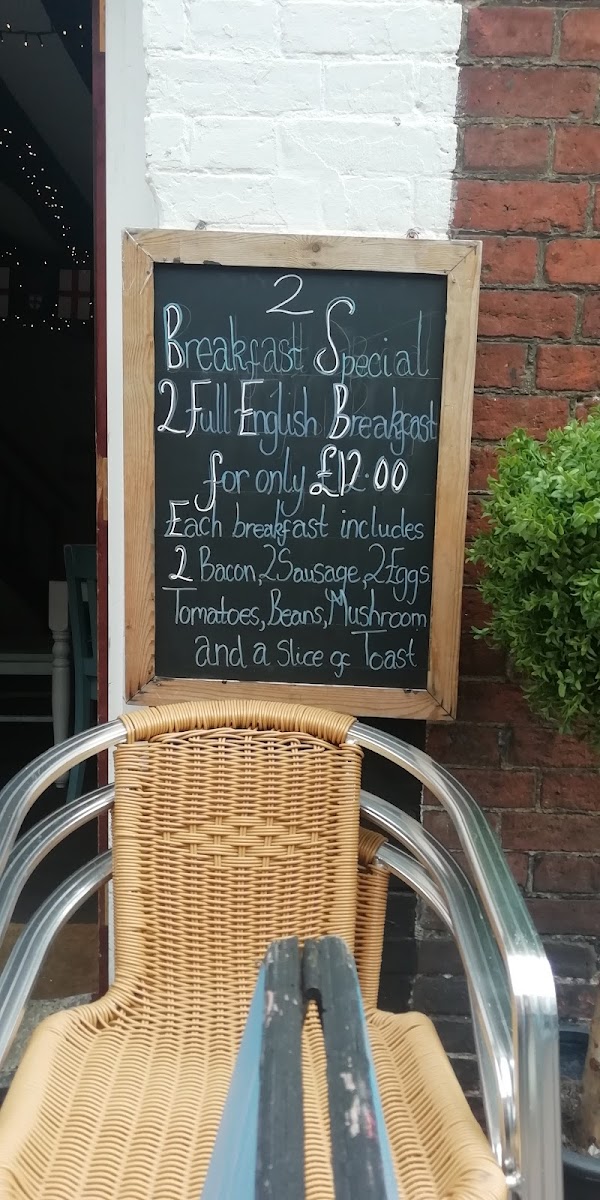 2
Breakfast Special
2 Full English Breakfast
for only £12.00
Each breakfast includes
2 Bacon, 2 Sausage, 2 Eggs
Tomatoes, Beans, Mushroom
and a Slice of Toast